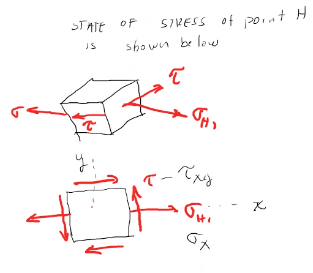 STATE OF STRESS of point H
is shown below
τ
σ
τ
σH,
y
τ - τxy
σH, x
σx